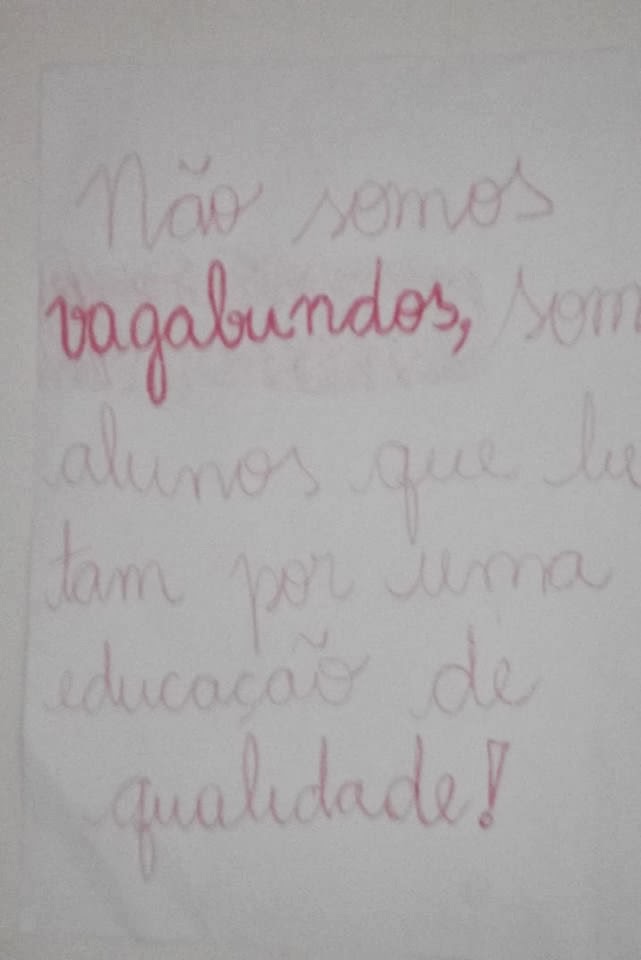 Não somos
vagabundos, som
alunos que lu
tam por uma
educação de
qualidade!